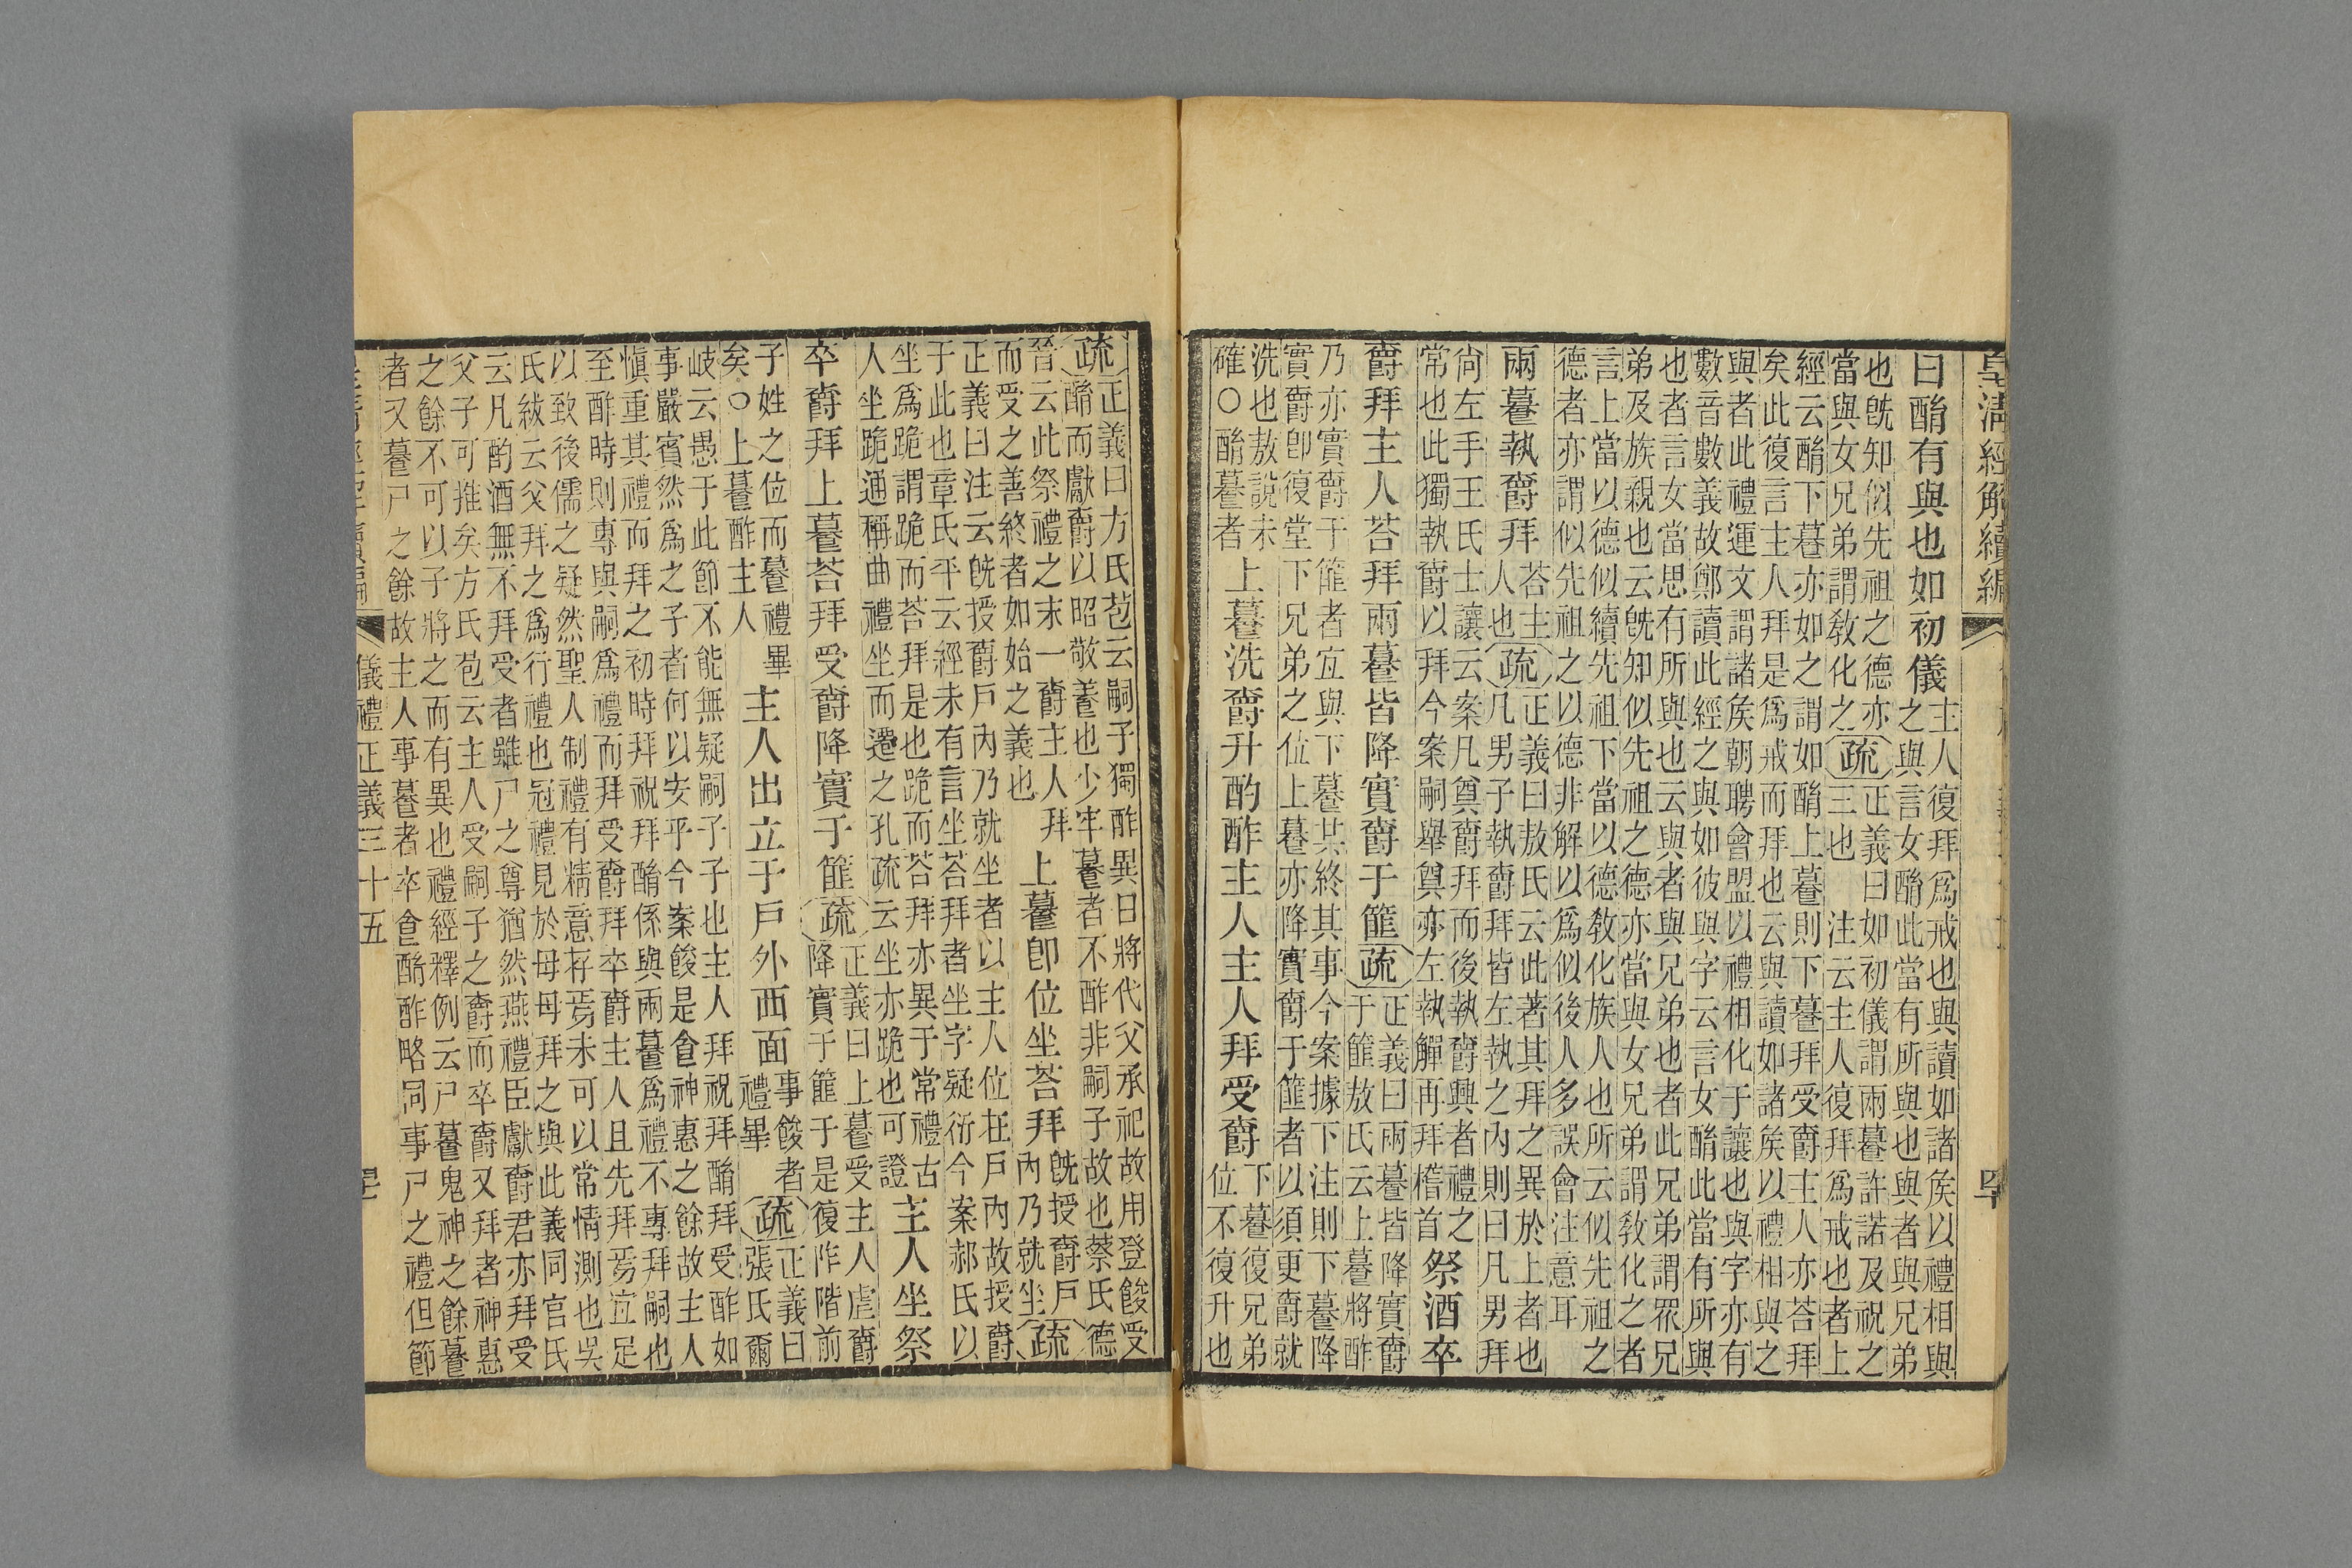 皇清經解續編
曰酳有與也如初儀主人復拜爲戒也與讀如諸矦以禮相與
之與言女酳此當有所與也與者與兄弟
也旣知似先祖之德亦
當與女兄弟謂敎化之疏正義曰如初儀謂兩䕓許諾及祝之
三也　注云主人復拜爲戒也者上
經云酳下䕓亦如之謂如酳上䕓則下䕓拜受爵主人亦荅拜
矣此復言主人拜是爲戒而拜也云與讀如諸矦以禮相與之
與者此禮運文謂諸矦朝聘會盟以禮相化于讓也與字亦有
數音數義故鄭讀此經之與如彼與字云言女酳此當有所與
也者言女當思有所與也云與者與兄弟也者此兄弟謂眾兄
弟及族親也云旣知似先祖之德亦當與女兄弟謂敎化之者
言上當以德似續先祖下當以德敎化族人也所云似先祖之
德者亦謂似先祖之以德非解以爲似後人多誤會注意耳
兩䕓執爵拜荅主
人也疏正義曰敖氏云此著其拜之異於上者也
凡男子執爵拜皆左執之內則曰凡男拜
尙左手王氏士讓云案凡奠爵拜而後執爵興者禮之
常也此獨執爵以拜今案嗣舉奠亦左執觶再拜稽首祭酒卒
爵拜主人荅拜兩䕓皆降實爵于篚疏正義曰兩䕓皆降實爵
于篚敖氏云上䕓將酢
乃亦實爵于篚者宐與下䕓共終其事今案據下注則下䕓降
實爵卽復堂下兄弟之位上䕓亦降實爵于篚者以須更爵就
洗也敖說未
確○酳䕓者上䕓洗爵升酌酢主人主人拜受爵下䕓復兄弟
位不復升也
疏正義曰方氏苞云嗣子獨酢異日將代父承祀故用登餕受
酳而獻爵以昭敬養也少牢䕓者不酢非嗣子故也蔡氏德
晉云此祭禮之末一爵主人拜
而受之善終者如始之義也上䕓卽位坐荅拜旣授爵戶
內乃就坐疏
正義曰注云旣授爵戶內乃就坐者以主人位在戶內故授爵
于此也章氏平云經未有言坐荅拜者坐字疑衍今案郝氏以
坐爲跪謂跪而荅拜是也跪而荅拜亦異于常禮古
人坐跪通稱曲禮坐而遷之孔疏云坐亦跪也可證主人坐祭
卒爵拜上䕓荅拜受爵降實于篚疏正義曰上䕓受主人虛爵
降實于篚于是復阼階前
子姓之位而䕓禮畢
矣○上䕓酢主人主人出立于戶外西面事餕者
禮畢疏正義曰
張氏爾
岐云愚于此節不能無疑嗣子子也主人拜祝拜酳拜受酢如
事嚴賓然爲之子者何以安乎今案餕是食神惠之餘故主人
愼重其禮而拜之初時拜祝拜酳係與兩䕓爲禮不專拜嗣也
至酢時則專與嗣爲禮而拜受爵拜卒爵主人且先拜焉宐足
以致後儒之疑然聖人制禮有精意存焉未可以常情測也吳
氏紱云父拜之爲行禮也冠禮見於母母拜之與此義同官氏
云凡酌酒無不拜受者雖尸之尊猶然燕禮臣獻爵君亦拜受
父子可推矣方氏苞云主人受嗣子之爵而卒爵又拜者神惠
之餘不可以子將之而有異也禮經釋例云尸䕓鬼神之餘䕓
者又䕓尸之餘故主人事䕓者卒食酳酢略同事尸之禮但節
儀禮正義三十五